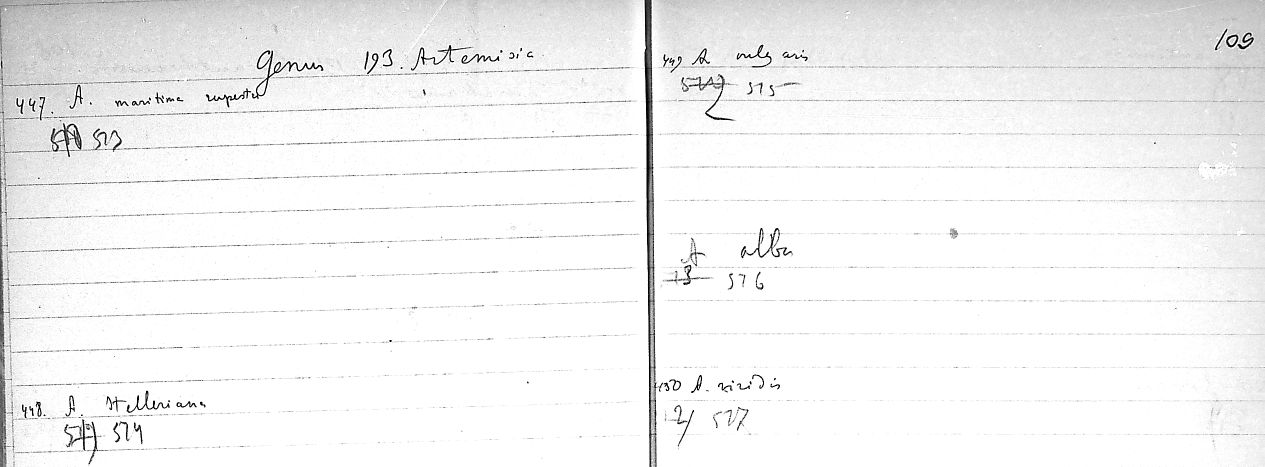 Genus 193. Artemisia
447. A. maritima rupestre
573
448. A. Stelleriana
574
109
449 A. vulgaris
575
A alba
13 576
450 A. viridis
577